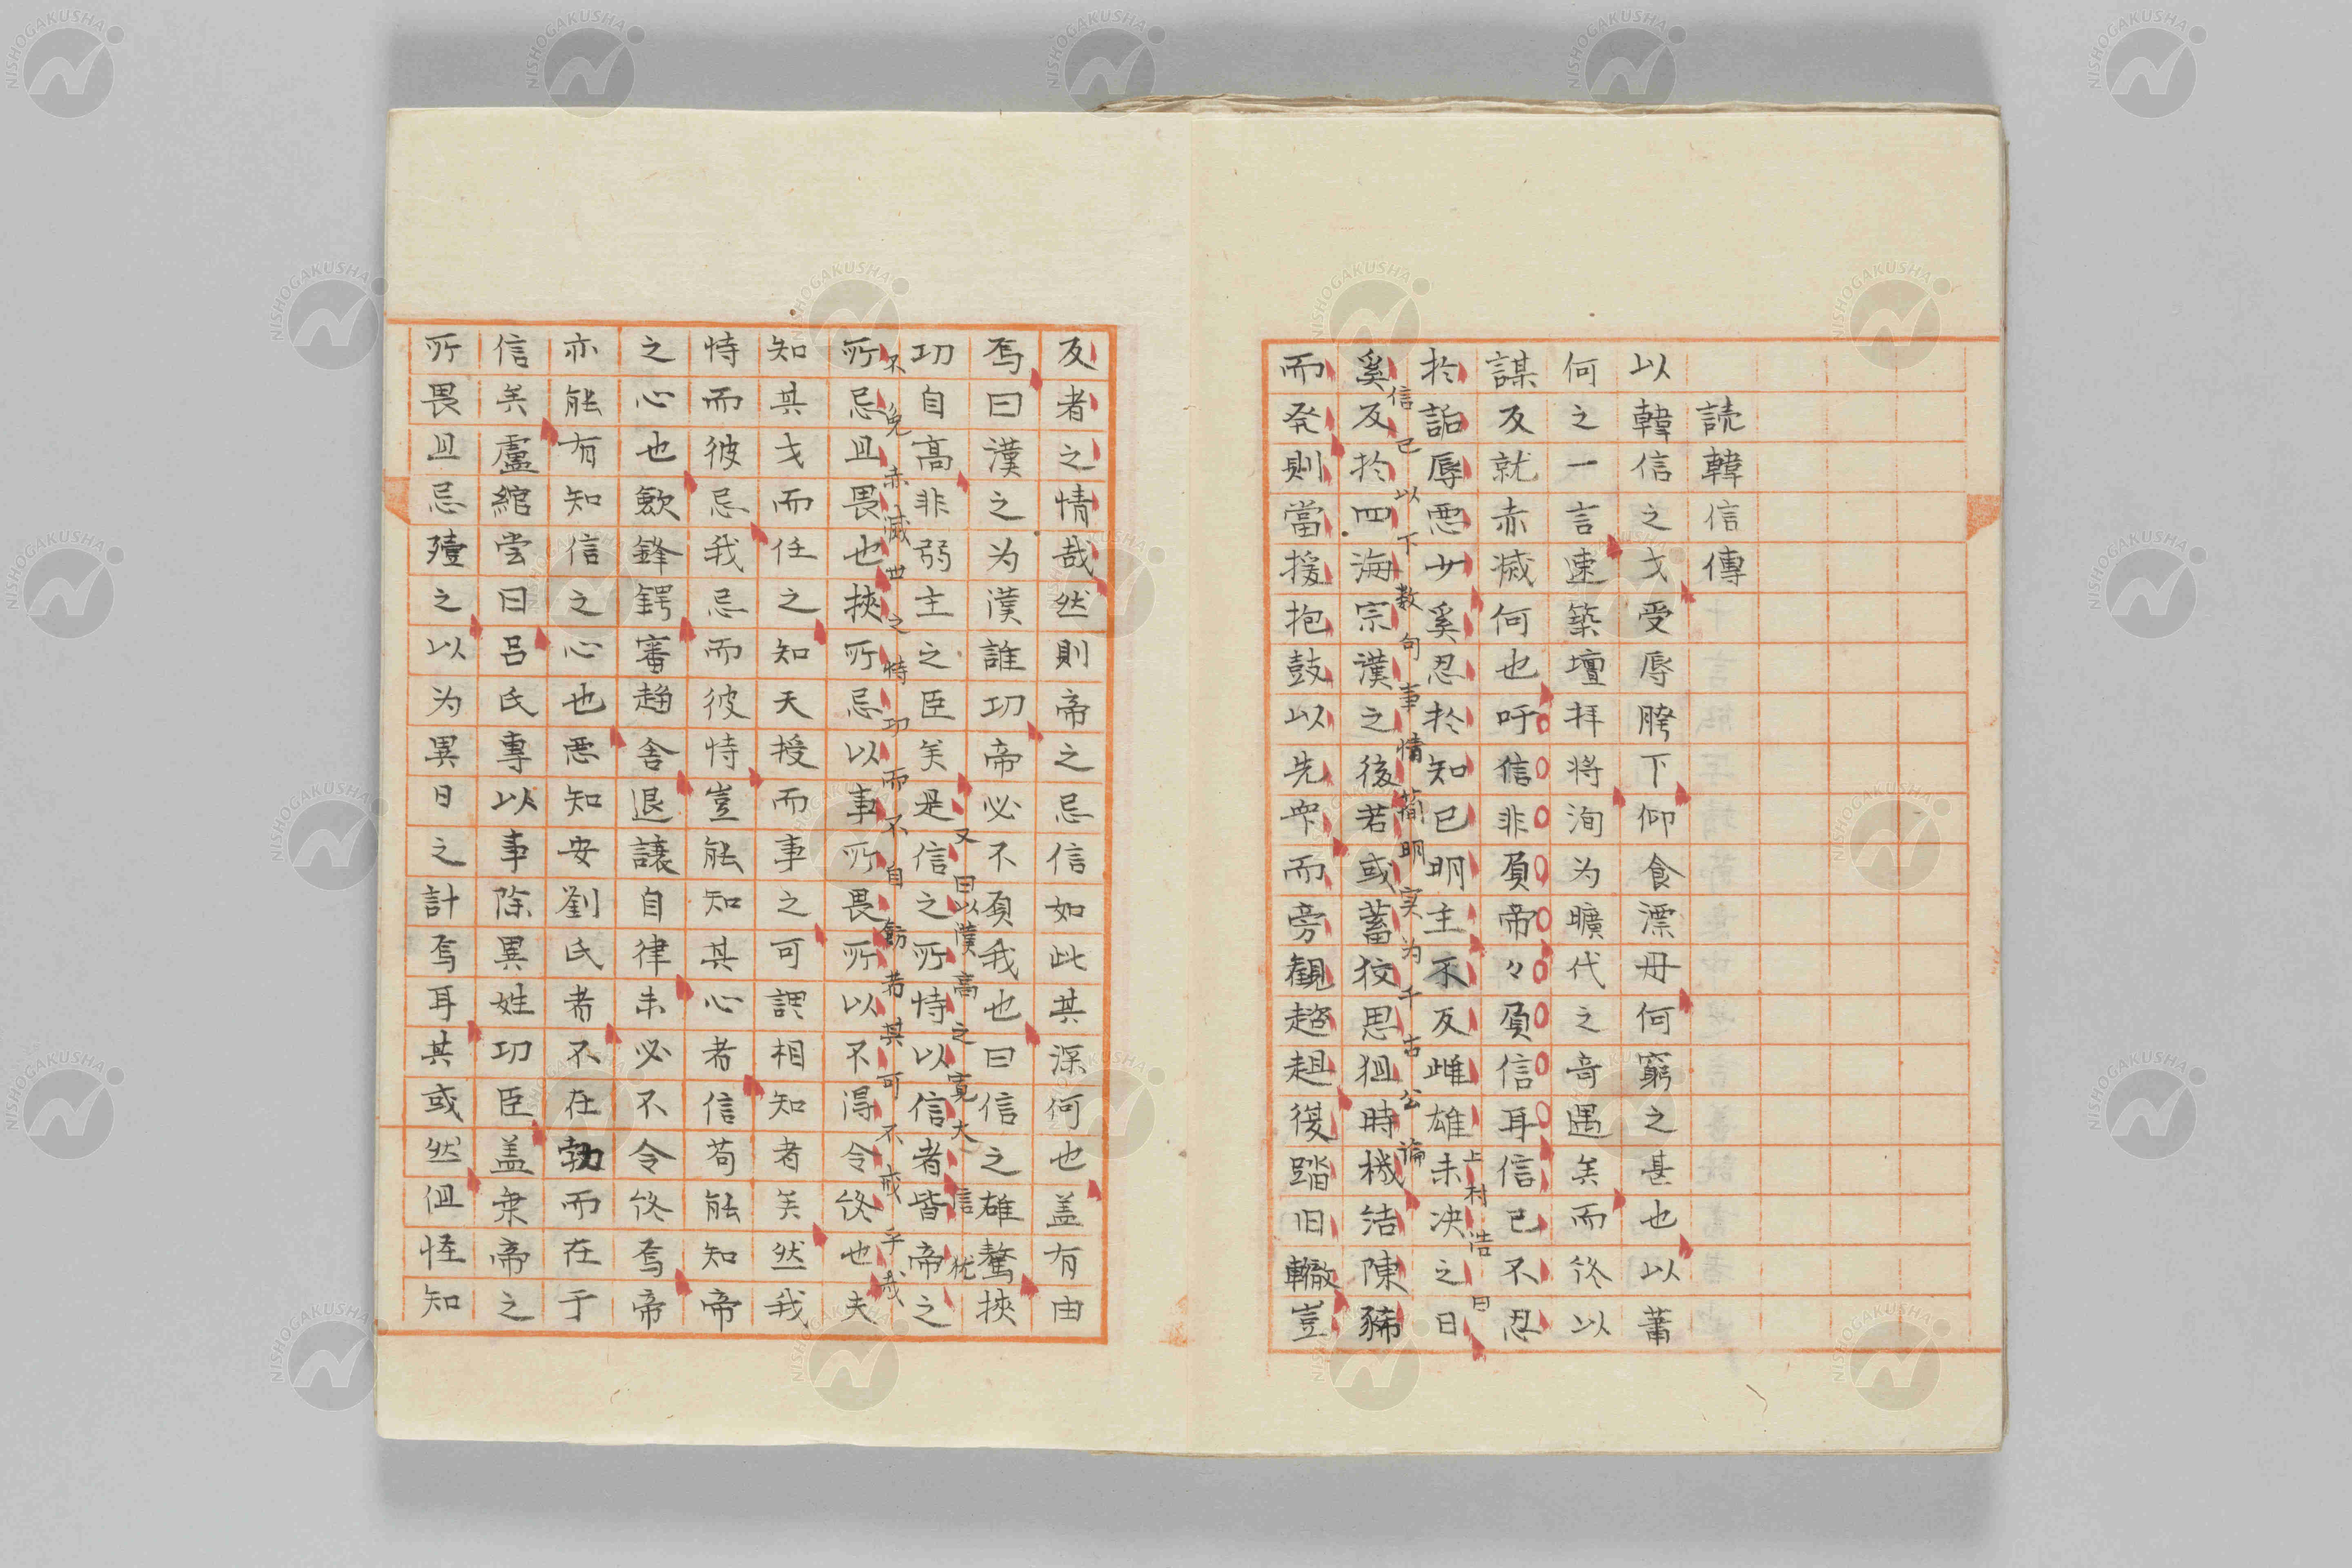 読韓信傳
以韓信之才受辱胯下仰食漂母何窮之甚也以蕭
何之一言速築壇拝将洵为曠代之奇遇矣而終以
謀反就赤滅何也吁信非負帝々負信耳信已不忍
於詬辱悪少奚忍於知已明主不反雌雄未决之日
上村浩曰
信已以下数句事情簡明実为千古公論
奚反於四海宗漢之後若或蓄狡思狙時機結陳豨
而発則當援抱鼓以先衆而旁観趦趄復踏旧轍豈
反者之情哉然則帝之忌信如此其深何也盖有由
焉曰漢之为漢誰功帝必不負我也曰信之雄驁挾
又曰以漢高之寛大信枕
功自高非弱主之臣矣是信之所恃以信者皆帝之
不免赤滅世之恃功而不自飭者其可不戒乎哉
所忌且畏也挾所忌以事所畏所以不得令終也夫
知其才而任之知天授而事之可謂相知者矣然我
恃而彼忌我忌而彼恃豈能知其心者信苟能知帝
之心也歛鋒鍔審趨舎退譲自律未必不令終焉帝
亦能有知信之心也悪知安劉氏者不在勃而在于
信矣盧綰尝曰呂氏専以事除異姓功臣盖棄帝之
所畏且忌殪之以为異日之計焉耳其或然但怪知
NISHOGAKUSHA